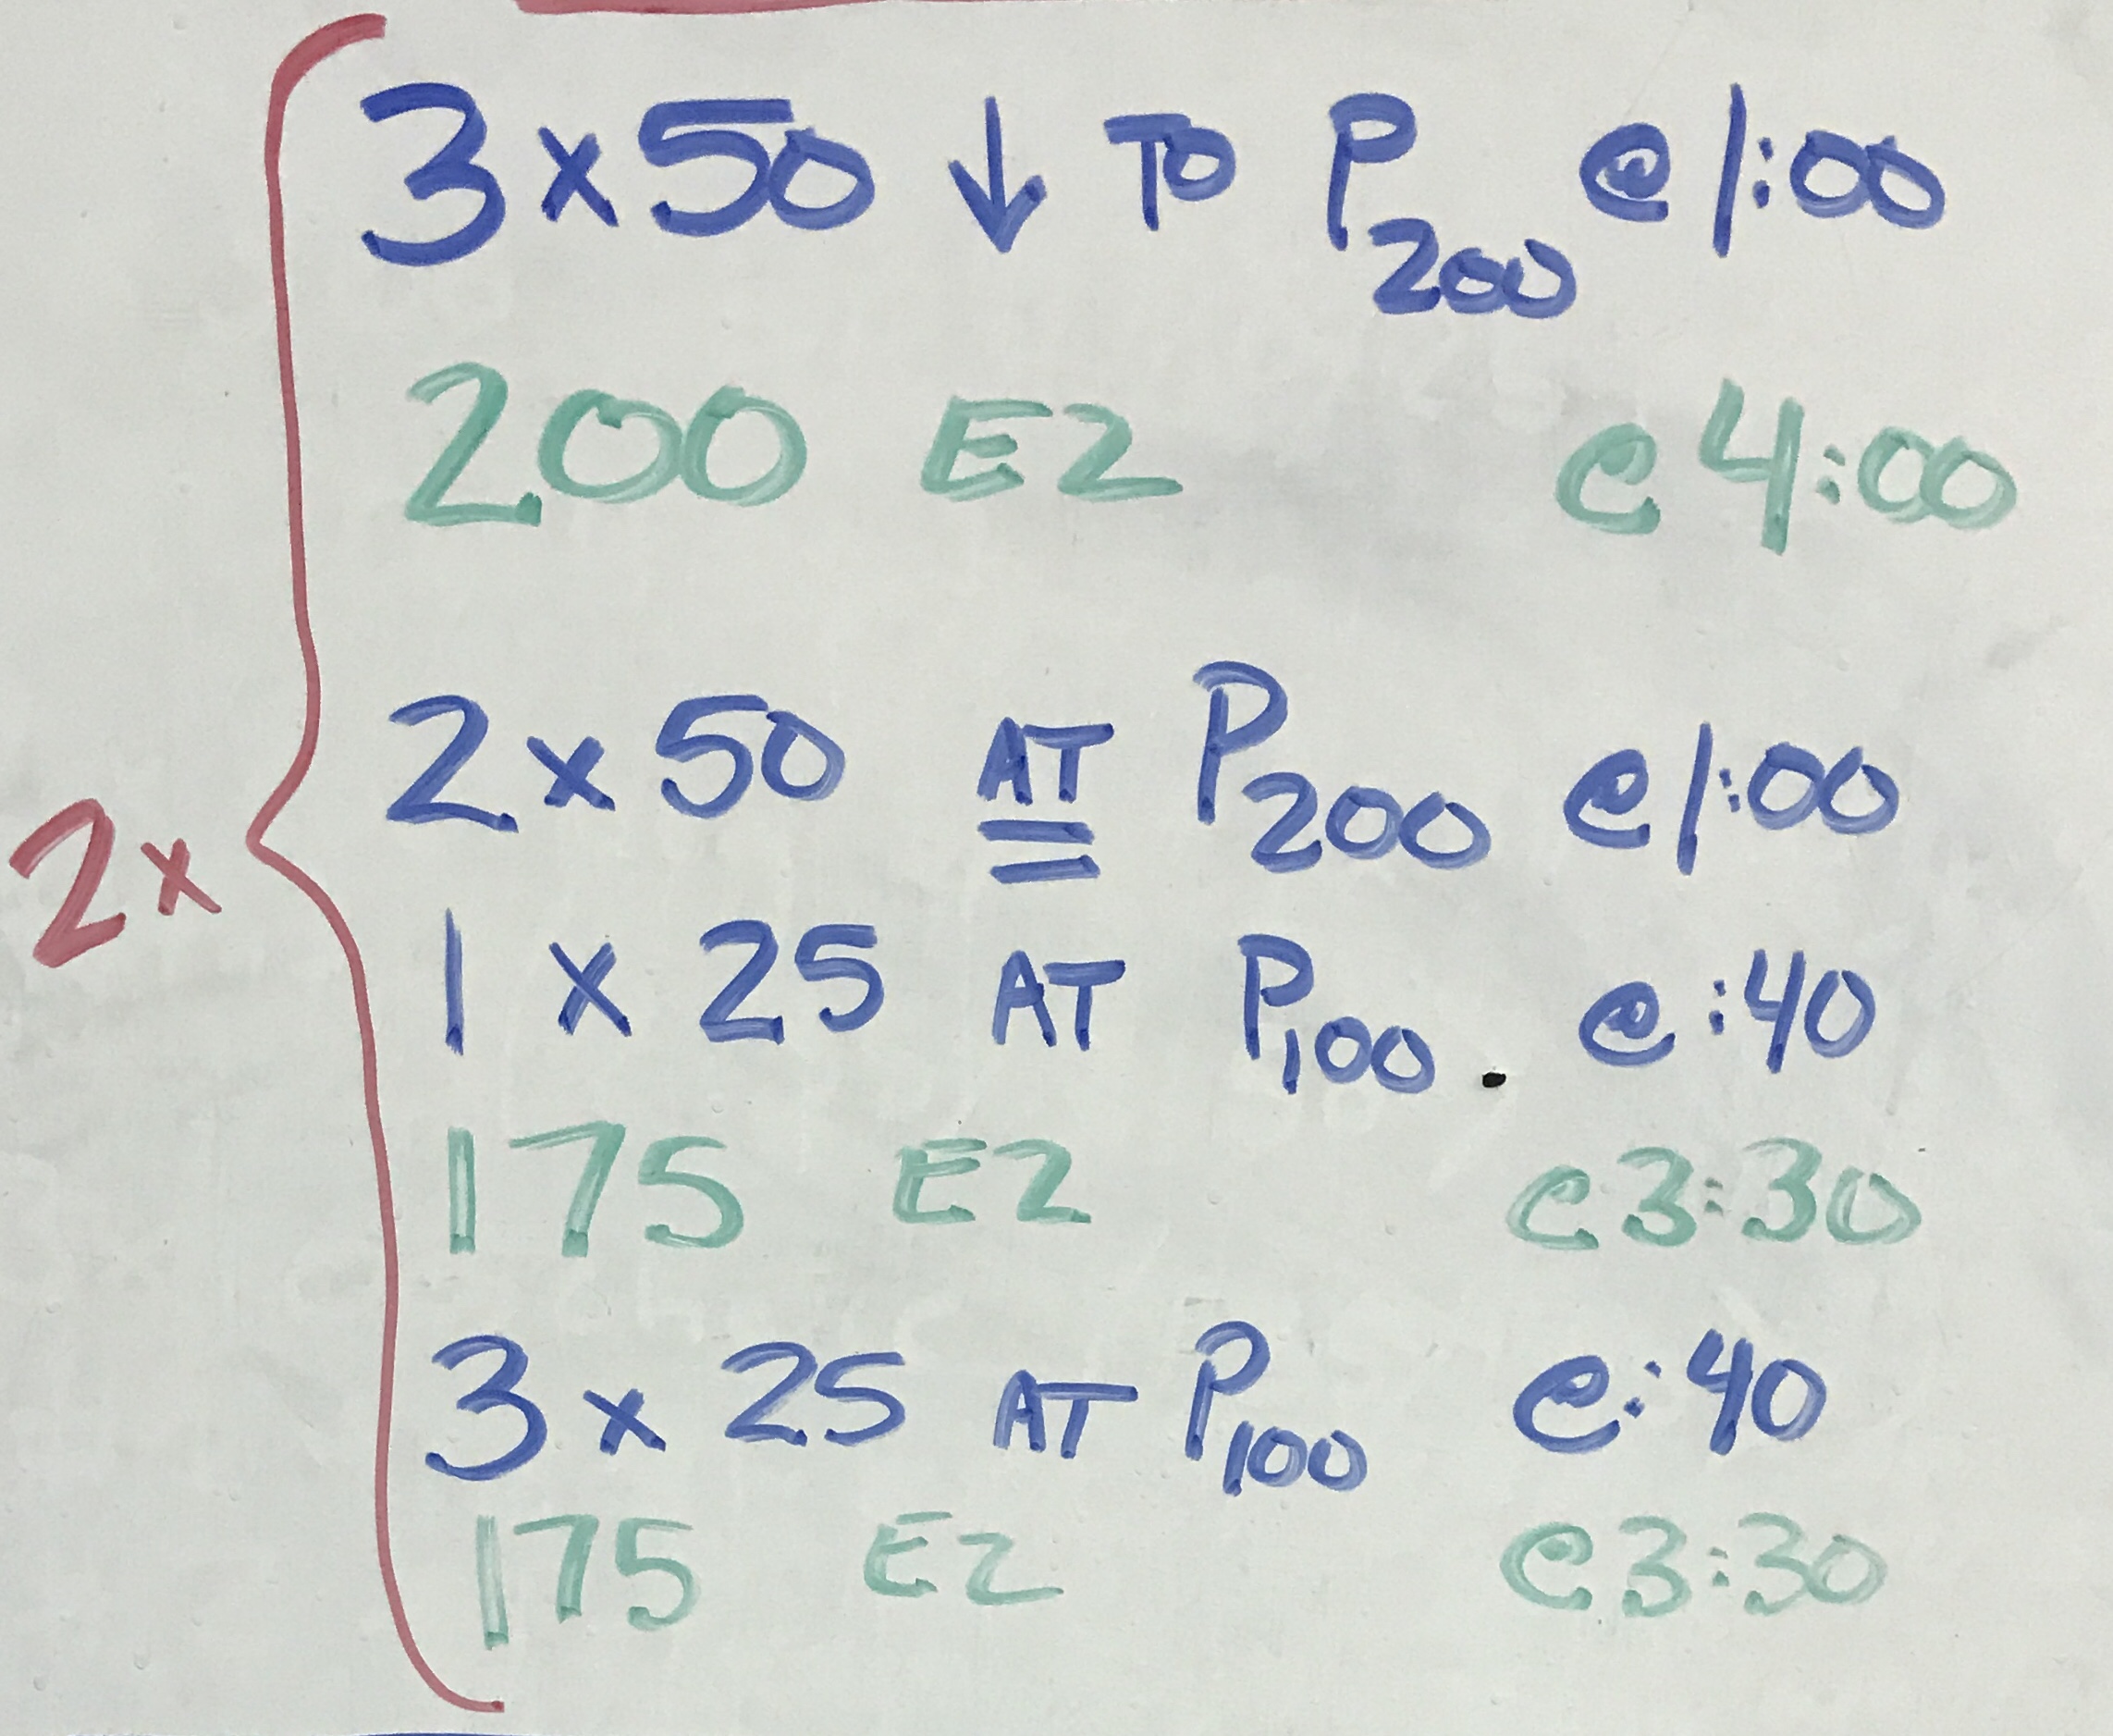 3x50 ↓ TO P200 @ 1:00
200 EZ @ 4:00
2x50 AT P200 @ 1:00
2x
1 x 25 AT P100 @ :40
175 EZ @ 3:30
3 x 25 AT P100 @ :40
175 EZ @ 3:30